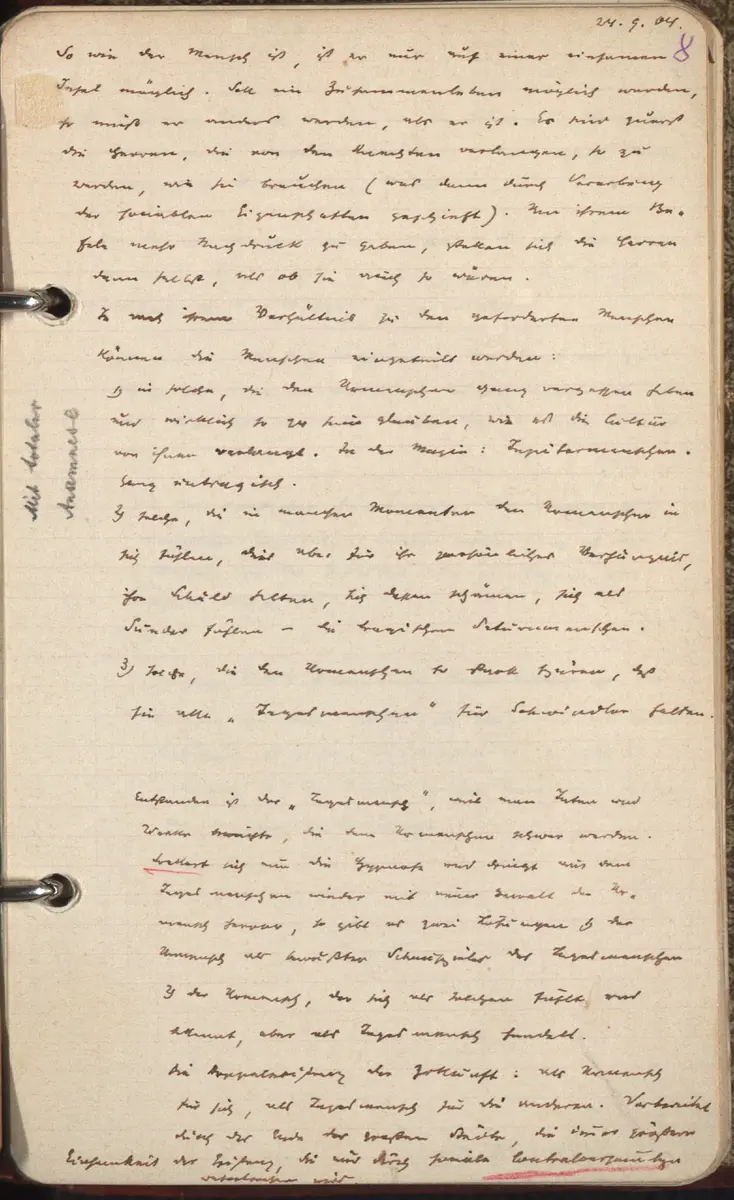 24. 9. 04.
8
So wie der Mensch ist, ist er nur auf einer einsamen
Insel möglich. Soll ein Zusammenleben möglich werden,
so muß er anders werden, als er ist. Es sind zuerst
die Herren, die von den Knechten verlangen, so zu
werden, wie sie brauchen (was dann durch Vererbung
der socialen Eigenschaften geschieht). Um ihrem Be-
fehle mehr Nachdruck zu geben, stellen sich die Herren
dann selbst, als ob sie auch so wären.
Je nach ihrem Verhältnis zu den geforderten Menschen
können die Menschen eingeteilt werden:
1) in solche, die den Urmenschen ganz vergessen haben
und wirklich so zu sein glauben, wie es die Cultur
von ihnen verlangt. In der Magie: Jupitermenschen.
Ganz untragisch.
2) solche, die in manchen Momenten den Urmenschen in
sich fühlen, dies aber für ihr persönliches Verhängnis,
ihre Schuld halten, sich dessen schämen, sich als
Sünder fühlen – die tragischen Saturnmenschen.
3) solche, die den Urmenschen so stark spüren, daß
sie alle „Tagesmenschen" für Schwindler halten.
Mit totaler
Anamnese
Entstanden ist der „Tagesmensch", weil man Taten und
Werke brauchte, die dem Urmenschen schwer werden.
Lockert sich nun die Hypnose und dringt aus dem
Tagesmenschen wieder mit neuer Gewalt der Ur-
mensch hervor, so gibt es zwei Lösungen 1) der
Urmensch als bewußter Schauspieler des Tagesmenschen
2) der Urmensch, der sich als solchen fühlt und
erkennt, aber als Tagesmensch handelt.
Die Doppelexistenz der Zukunft: als Urmensch
für sich, als Tagesmensch für die anderen. Vorbereitet
durch das Ende der großen Städte, die immer größere
Einsamkeit der Existenz, die nur durch sociale
unterbrochen wird